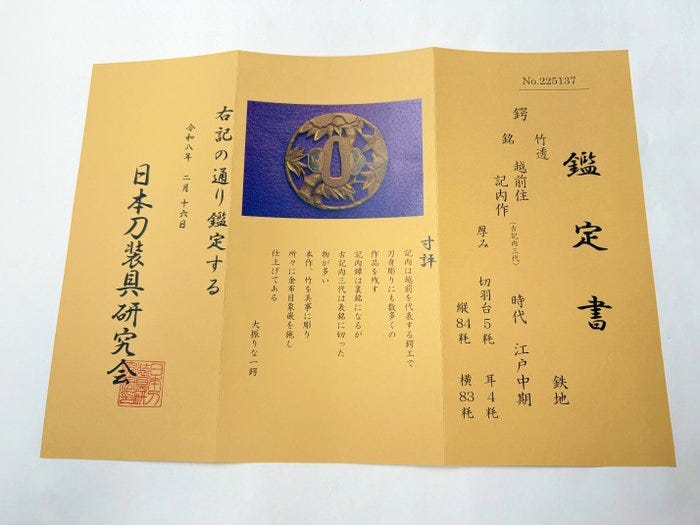 No.225137
鑑定書
鉄地
竹透
鍔
時代 江戸中期
銘 越前住
記内作
(古記内三代)
厚み 切羽台5粍 耳4粍
縦84粍 横83粍
寸評
記内は越前を代表する鍔工で
刀身彫りにも数多くの
作品を残す
記内鐔は裏銘になるが
古記内三代は表銘に切った
物が多い
本作、竹を美事に彫り
所々に金布目象嵌を施し
仕上げてある
大振りな一鍔
右記の通り鑑定する
令和八年 二月 十六日
日本刀装具研究会
日本刀
装具研
究会